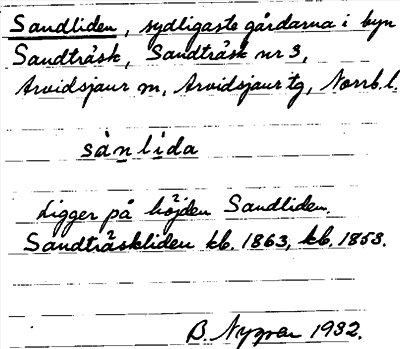 Sandliden, sydligaste gårdarna i byn
Sandträsk, Sandträsk nr 3,
Arvidsjaur sn, Arvidsjaur tg, Norrb. l.
sànlida
Ligger på höjden Sandliden.
Sandträskliden kb. 1863, kb. 1853.
B. Nygren 1932.